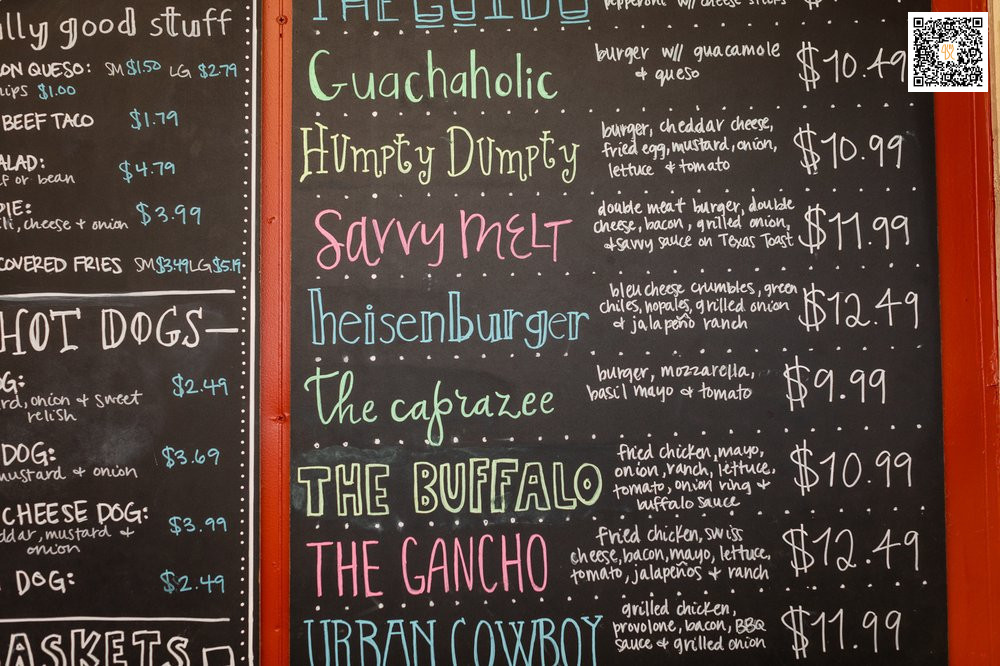 lly good stuff
ON QUESO: SM $1.50 LG $2.79
hips $1.00
BEEF TACO $1.79
ALAD: $4.79
f or bean
PIE: $3.99
li, cheese + onion
COVERED FRIES SM $3.49 LG $5.19
HOT DOGS
G: $2.49
rd, onion & sweet
relish
DOG: $3.69
mustard & onion
CHEESE DOG: $3.99
ddar, mustard &
onion
DOG: $2.49
ASKETS
THE GUIDO
pepperoni w/ cheese
Guachaholic
burger w// guacamole
& queso
$10.49
Humpty Dumpty
burger, cheddar cheese,
fried egg, mustard, onion,
lettuce & tomato
$10.99
Savvy MELT
double meat burger, double
cheese, bacon, grilled onion,
& savvy sauce on Texas Toast
$11.99
heisenburger
bleu cheese crumbles, green
chiles, nopales, grilled onion
& jalapeño ranch
$12.49
the caprazee
burger, mozzarella,
basil mayo & tomato
$9.99
THE BUFFALO
fried chicken, mayo,
onion, ranch, lettuce,
tomato, onion ring &
buffalo sauce
$10.99
THE GANCHO
fried chicken, swiss
cheese, bacon, mayo, lettuce,
tomato, jalapeños & ranch
$12.49
URBAN COWBOY
grilled chicken,
provolone, bacon, BBQ
sauce & grilled onion
$11.99